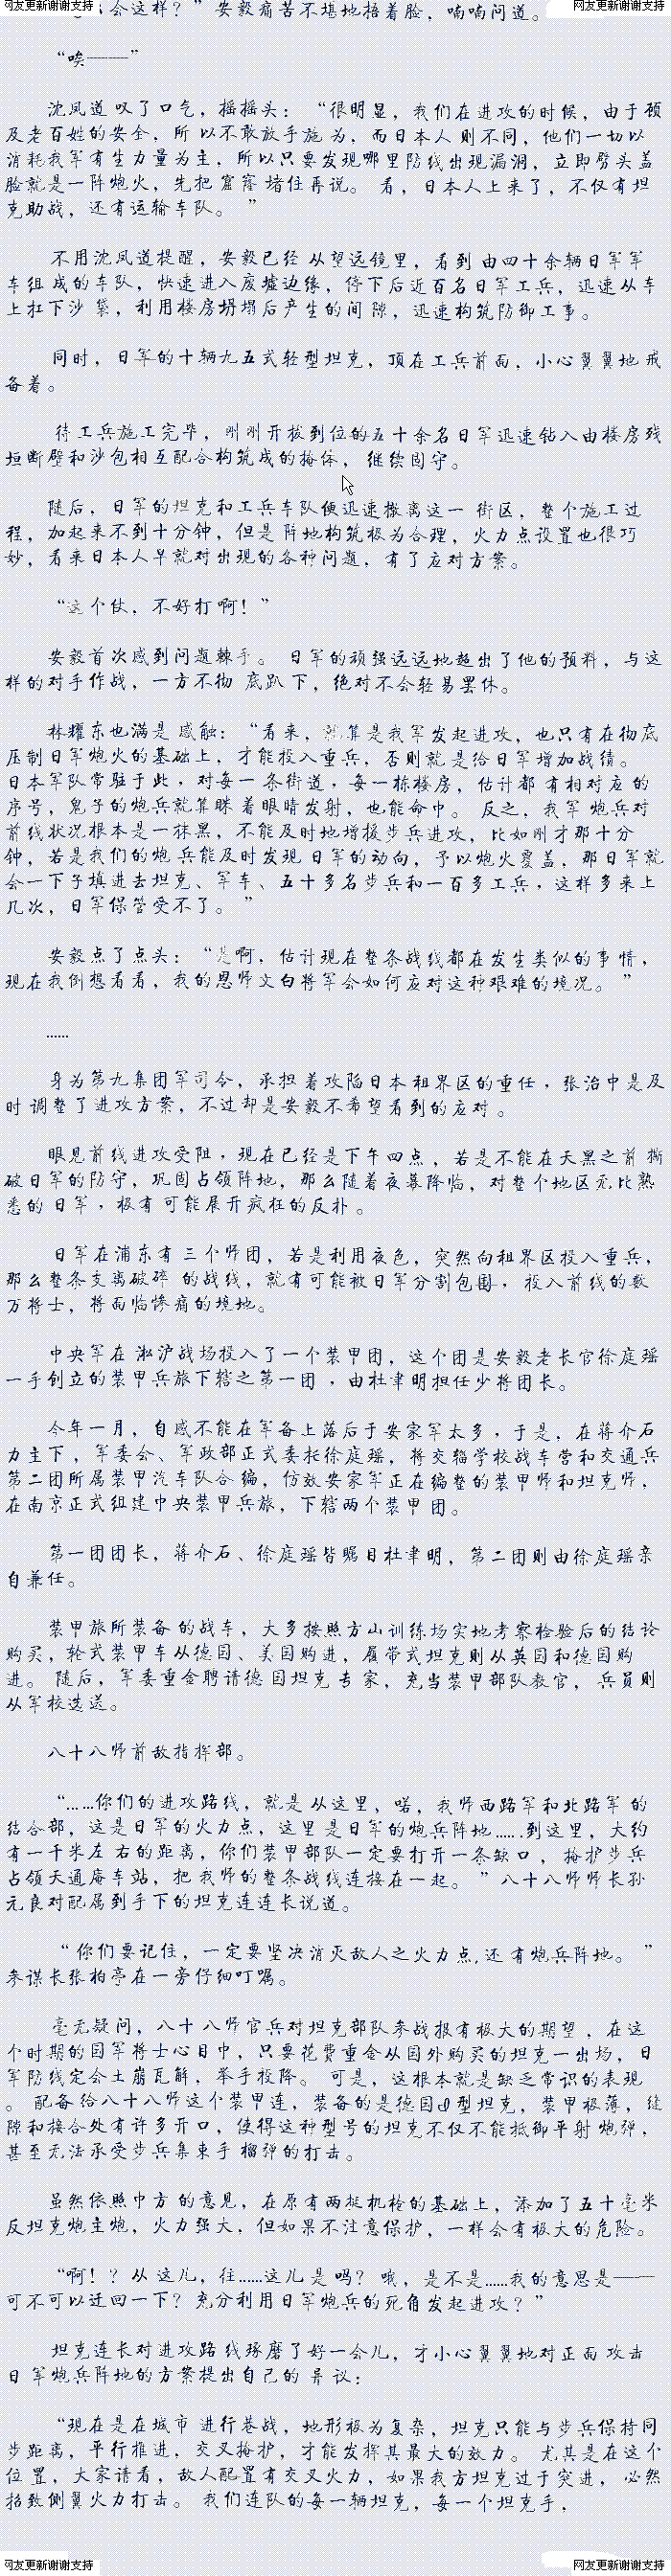 网友更新谢谢支持 网友更新谢谢支持
会这样？”安毅痛苦不堪地捂着脸，喃喃问道。
“唉——”
沈凤道叹了口气，摇摇头：“很明显，我们在进攻的时候，由于顾
及老百姓的安全，所以不敢放手施为，而日本人则不同，他们一切以
消耗我军有生力量为主，所以只要发现哪里防线出现漏洞，立即劈头盖
脸就是一阵炮火，先把窟窿堵住再说。看，日本人上来了，不仅有坦
克助战，还有运输车队。”
不用沈凤道提醒，安毅已经从望远镜里，看到由四十余辆日军军
车组成的车队，快速进入废墟边缘，停下后近百名日军工兵，迅速从车
上扛下沙袋，利用楼房坍塌后产生的间隙，迅速构筑防御工事。
同时，日军的十辆九五式轻型坦克，顶在工兵前面，小心翼翼地戒
备着。
待工兵施工完毕，刚刚开拔到位的五十余名日军迅速钻入由楼房残
垣断壁和沙包相互配合构筑成的掩体，继续固守。
随后，日军的坦克和工兵车队便迅速撤离这一街区，整个施工过
程，加起来不到十分钟，但是阵地构筑极为合理，火力点设置也很巧
妙，看来日本人早就对出现的各种问题，有了应对方案。
“这个仗，不好打啊！”
安毅首次感到问题棘手。日军的顽强远远地超出了他的预料，与这
样的对手作战，一方不彻底趴下，绝对不会轻易罢休。
林耀东也满是感触：“看来，就算是我军发起进攻，也只有在彻底
压制日军炮火的基础上，才能投入重兵，否则就是给日军增加战绩。
日本军队常驻于此，对每一条街道，每一栋楼房，估计都有相对应的
序号，鬼子的炮兵就算眯着眼睛发射，也能命中。反之，我军炮兵对
前线状况根本是一抹黑，不能及时地增援步兵进攻，比如刚才那十分
钟，若是我们的炮兵能及时发现日军的动向，予以炮火覆盖，那日军就
会一下子填进去坦克、军车、五十多名步兵和一百多工兵，这样多来上
几次，日军保管受不了。”
安毅点了点头：“是啊，估计现在整条战线都在发生类似的事情，
现在我倒想看看，我的恩师文白将军会如何应对这种艰难的境况。”
……
身为第九集团军司令，承担着攻陷日本租界区的重任，张治中是及
时调整了进攻方案，不过却是安毅不希望看到的应对。
眼见前线进攻受阻，现在已经是下午四点，若是不能在天黑之前撕
破日军的防守，巩固占领阵地，那么随着夜幕降临，对整个地区无比熟
悉的日军，极有可能展开疯狂的反扑。
日军在浦东有三个师团，若是利用夜色，突然向租界区投入重兵，
那么整条支离破碎的战线，就有可能被日军分割包围，投入前线的数
万将士，将面临惨痛的境地。
中央军在淞沪战场投入了一个装甲团，这个团是安毅老长官徐庭瑶
一手创立的装甲兵旅下辖之第一团，由杜聿明担任少将团长。
今年一月，自感不能在军备上落后于安家军太多，于是，在蒋介石
力主下，军委会、军政部正式委托徐庭瑶，将交辎学校战车营和交通兵
第二团所属装甲汽车队合编，仿效安家军正在编整的装甲师和坦克师，
在南京正式组建中央装甲兵旅，下辖两个装甲团。
第一团团长，蒋介石、徐庭瑶皆瞩目杜聿明，第二团则由徐庭瑶亲
自兼任。
装甲旅所装备的战车，大多按照方山训练场实地考察检验后的结论
购买，轮式装甲车从德国、美国购进，履带式坦克则从英国和德国购
进。随后，军委重金聘请德国坦克专家，充当装甲部队教官，兵员则
从军校选送。
八十八师前敌指挥部。
“……你们的进攻路线，就是从这里，喏，我师西路军和北路军的
结合部，这是日军的火力点，这里是日军的炮兵阵地……到这里，大约
有一千米左右的距离，你们装甲部队一定要打开一条缺口，掩护步兵
占领天通庵车站，把我师的整条战线连接在一起。”八十八师师长孙
元良对配属到手下的坦克连连长说道。
“你们要记住，一定要坚决消灭敌人之火力点,还有炮兵阵地。”
参谋长张柏亭在一旁仔细叮嘱。
毫无疑问，八十八师官兵对坦克部队参战报有极大的期望，在这
个时期的国军将士心目中，只要花费重金从国外购买的坦克一出场，日
军防线定会土崩瓦解，举手投降。可是，这根本就是缺乏常识的表现
。配备给八十八师这个装甲连，装备的是德国I型坦克，装甲极薄，缝
隙和接合处有许多开口，使得这种型号的坦克不仅不能抵御平射炮弹，
甚至无法承受步兵集束手榴弹的打击。
虽然依照中方的意见，在原有两挺机枪的基础上，添加了五十毫米
反坦克炮主炮，火力强大，但如果不注意保护，一样会有极大的危险。
“啊！？从这儿，往……这儿是吗？哦，是不是……我的意思是——
可不可以迂回一下？充分利用日军炮兵的死角发起进攻？”
坦克连长对进攻路线琢磨了好一会儿，才小心翼翼地对正面攻击
日军炮兵阵地的方案提出自己的异议：
“现在是在城市进行巷战，地形极为复杂，坦克只能与步兵保持同
步距离，平行推进，交叉掩护，才能发挥其最大的效力。尤其是在这个
位置，大家请看，敌人配置有交叉火力，如果我方坦克过于突进，必然
招致侧翼火力打击。我们连队的每一辆坦克，每一个坦克手，
网友更新谢谢支持 网友更新谢谢支持